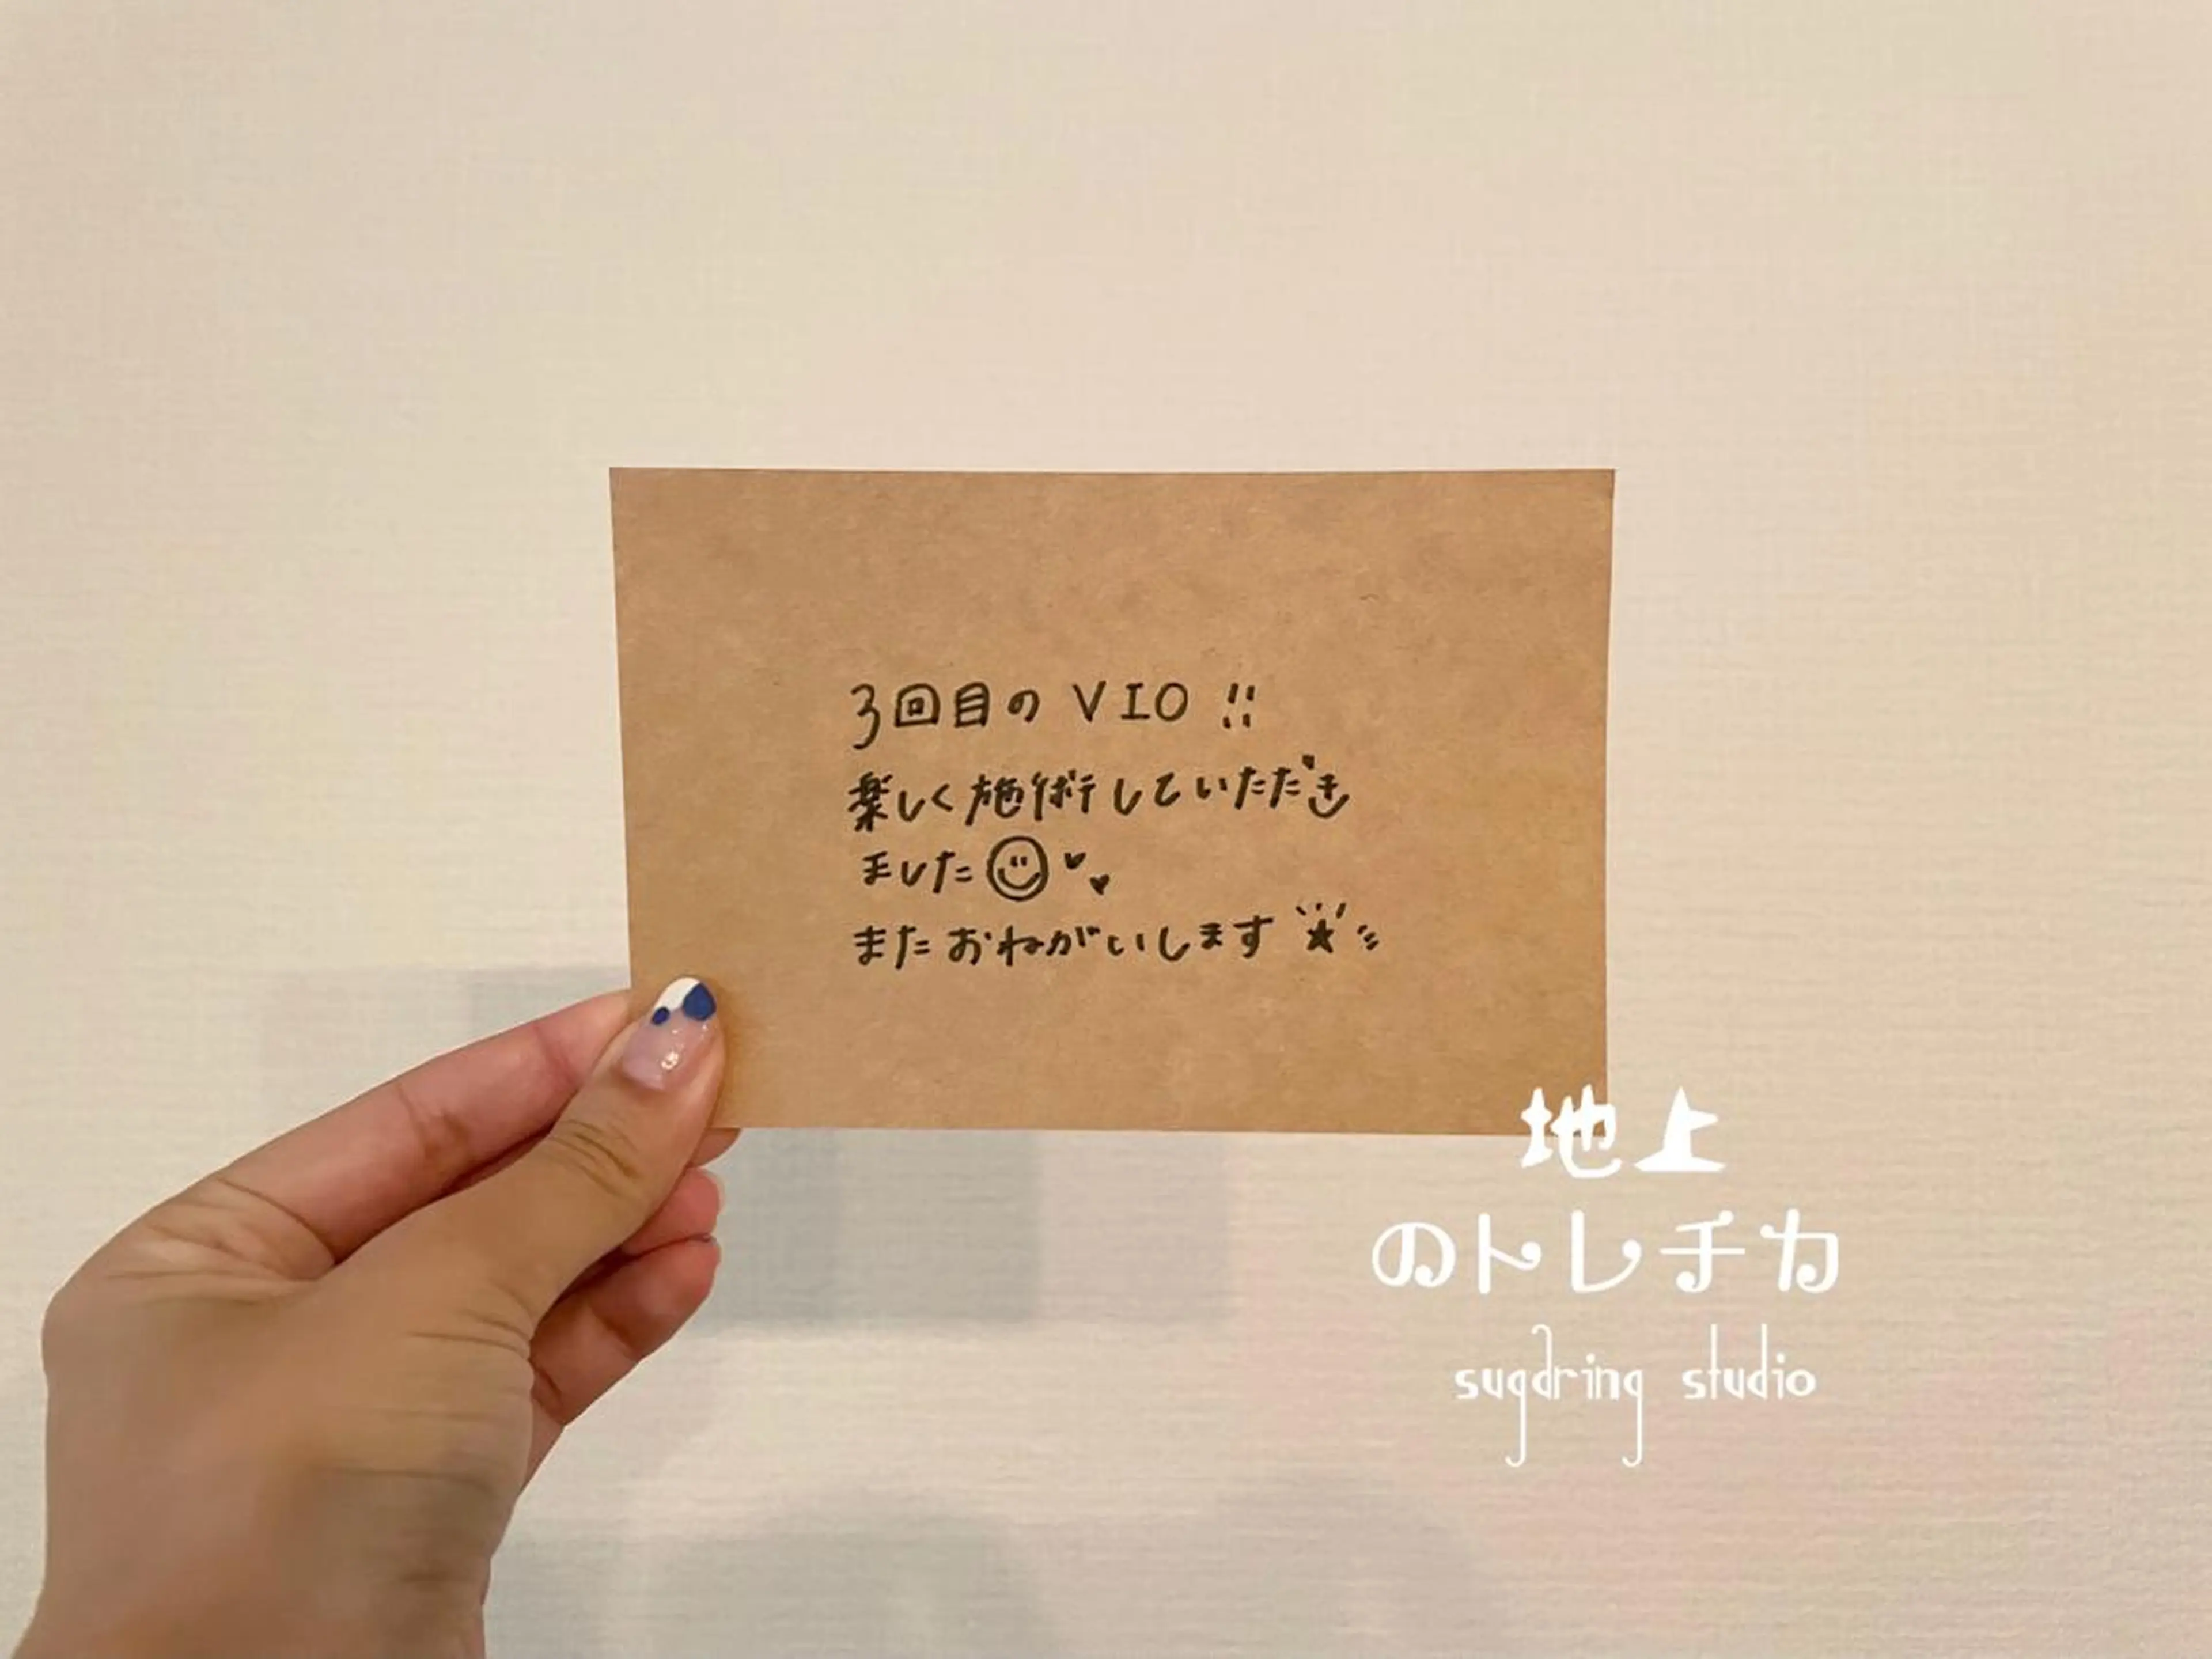 3回目のVIO!!
楽しく施術していただき
ました
またおねがいします
地上
のトレチカ
sugdring studio